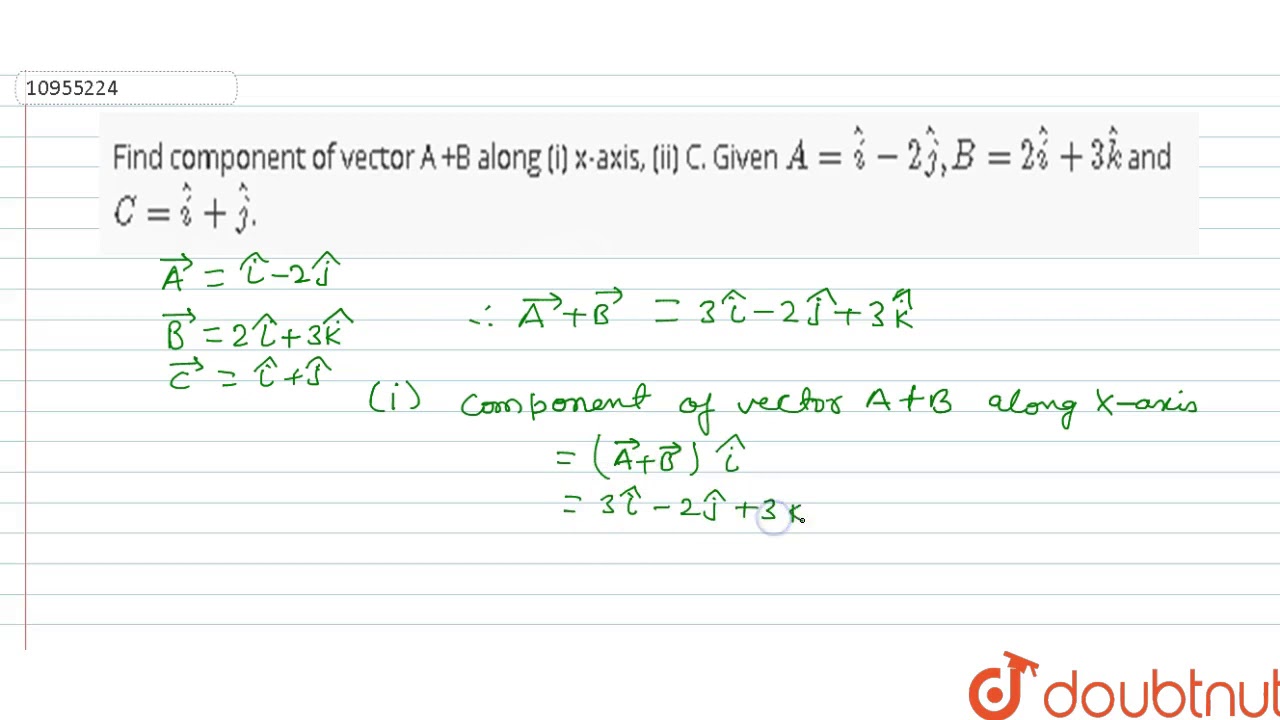 10955224
Find component of vector A +B along (i) x-axis, (ii) C. Given A = î − 2ĵ, B = 2î + 3k̂ and
C = î + ĵ.
A⃗ = î − 2ĵ
B⃗ = 2î + 3k̂
C⃗ = î + ĵ
∴ A⃗ + B⃗ = 3î − 2ĵ + 3k̂
(i) component of vector A+B along X-axis
= (A⃗+B⃗) î
= 3î − 2ĵ + 3 k
doubtnut